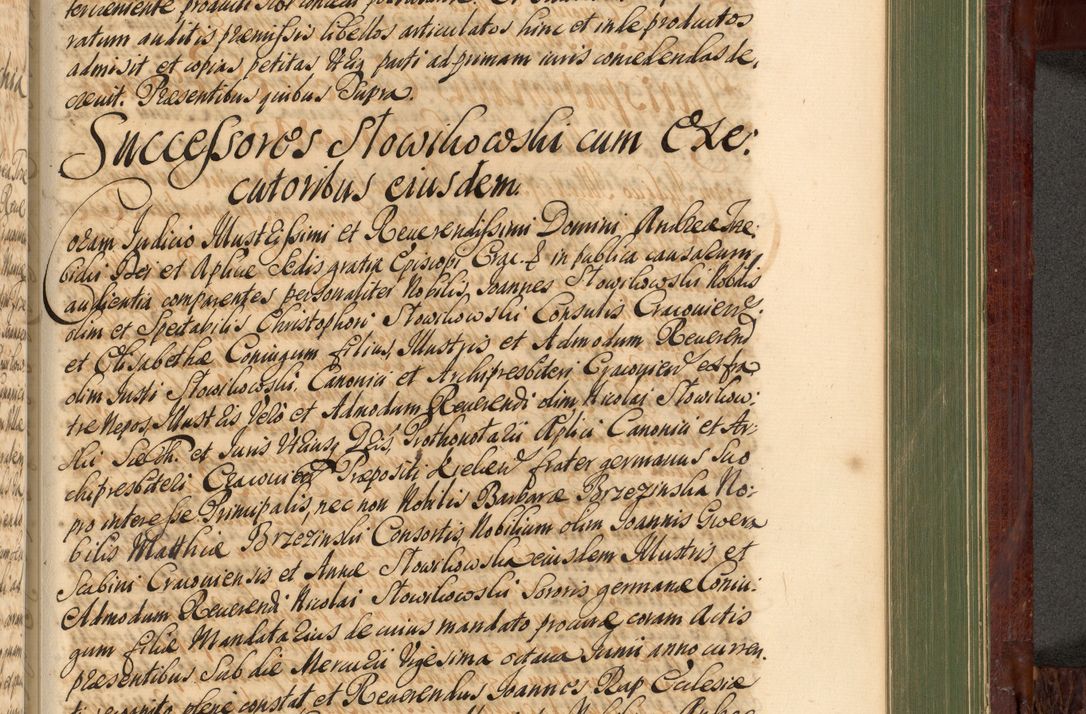 ratum auditis præmissis libellos articulatos hinc et inde productos
admisit et copias petitas Utq parti ad primam iuris concedendas de,
creuit. Præsentibus quibus Supra.
Successores Słowikowski cum Exe:
cutoribus eiusdem.
Coram Judicio Illustrissimi et Reuerendissimi Domini Andreæ Tre,
bicki Dei et Aplicæ Sedis gratia Episcopi Crac. in publica causarum
audientia comparentes personaliter Nobilis Joannes Słowikowski Nobilis
olim et Spectabilis Christophori Słowikowski Consulis Cracouien
et Elisabethæ Coniugum filius, Illustris et Admodum Reuerend
olim Justi Słowikowski, Canonici et Archipresbiteri Cracouien ex fra
tre Nepos Illustris Vero et Admodum Reuerendi olim Nicolai Słowikow:
ski S. Th. et Juris Utriusq Dris, Prothonotarii Aplici Canonici et Ar
chipresbiteri Cracouien Præpositi Kielcen frater germanus Suo
pro interesse Principalis, nec non Nobilis Barbaræ Brzezinska No:
bilis Matthiæ Brzezinski Consortis, Nobilium olim Joannis Gwera
Scabini Cracouiensis et Annæ Słowikowska eiusdem Illustris et
Admodum Reuerendi Nicolai Słowikowski Sororis germanæ Coniu:
gum filiæ Mandatarius de cuius mandato procure coram Actis
præsentibus Sub die Mercurii Vigesima octaua Junii anno curren.
plene constat et Reuerendus Joannes Rap Ecclesiæ